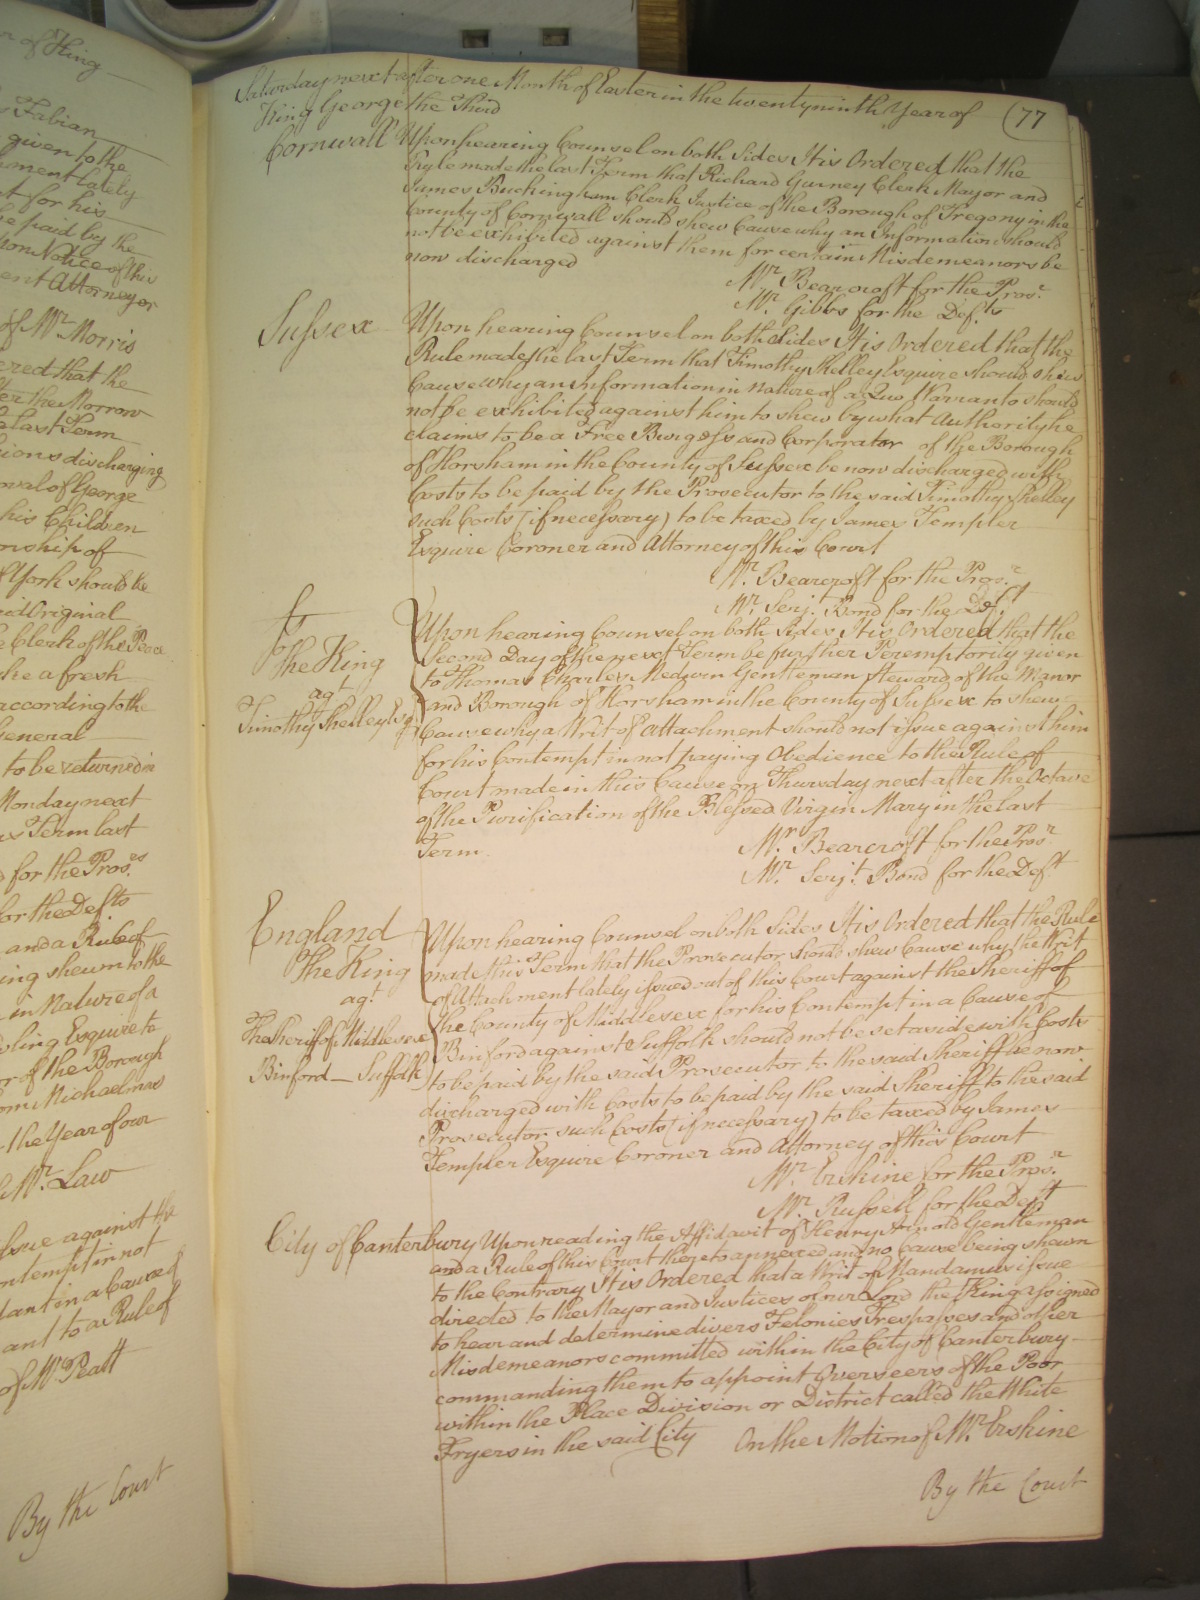 r of King
s Fabian
given to the
ment lately
t for his
e paid by the
pon Notice of this
ent Attorney or
of Mr Morris
ered that the
ter the Morrow
e last Term
ions discharging
oval of George
his Children
onship of
f York should be
id Original
e Clerk of the Peace
ke a fresh
according to the
General
to be returned in
Monday next
s Term last
d for the Pros.rs
for the Def.ts
and a Rule of
ing shewn to the
in Nature of a
ling Esquire to
or of the Borough
om Michaelmas
the Year of our
Mr. Law
Issue against the
ntempt in not
dant in a Cause of
ant to a Rule of
of Mr Peatt
By the Court
Saturday next after one Month of Easter in the twenty ninth Year of (77
King George the Third
Cornwall Upon hearing Counsel on both Sides It is Ordered that the
Rule made the last Term that Richard Gurney Clerk Mayor and
James Buckingham Clerk Justice of the Borough of Tregony in the
County of Cornwall should shew Cause why an Information should
not be exhibited against them for certain Misdemeanors be
now discharged
Mr. Bearcroft for the Pros.r
Mr. Gibbs for the Def.ts
Sussex Upon hearing Counsel on both Sides It is Ordered that the
Rule made the last Term that Timothy Shelley Esquire should shew
Cause why an Information in Nature of a Quo Warranto should
not be exhibited against him to shew by what Authority he
claims to be a Free Burgess and Corporator of the Borough
of Horsham in the County of Sussex be now discharged with
Costs to be paid by the Prosecutor to the said Timothy Shelley
such Costs (if necessary) to be taxed by James Templer
Esquire Coroner and Attorney of this Court
Mr. Bearcroft for the Pros.r
Mr. Serj.t Bond for the Def.t
The King
ag.t
Timothy Shelley Esq
Upon hearing Counsel on both Sides It is Ordered that the
Second Day of the next Term be further Peremptorily given
to Thomas Charles Medwin Gentleman Steward of the Manor
and Borough of Horsham in the County of Sussex to shew
Cause why a Writ of Attachment should not issue against him
for his Contempt in not paying Obedience to the Rule of
Court made in this Cause on Thursday next after the Octave
of the Purification of the Blessed Virgin Mary in the last
Term
Mr. Bearcroft for the Pros.r
Mr. Serj.t Bond for the Def.t
England
The King
ag.t
The Sheriff of Middlesex
Binford _ Suffolk
Upon hearing Counsel on both Sides It is Ordered that the Rule
made this Term that the Prosecutor should shew Cause why the Writ
of Attachment lately issued out of this Court against the Sheriff of
the County of Middlesex for his Contempt in a Cause of
Binford against Suffolk should not be set aside with Costs
to be paid by the said Prosecutor to the said Sheriff be now
discharged with Costs to be paid by the said Sheriff to the said
Prosecutor such Costs (if necessary) to be taxed by James
Templer Esquire Coroner and Attorney of this Court
Mr. Erskine for the Pros.r
Mr. Russell for the Def.t
City of Canterbury Upon reading the Affidavit of Henry Arnold Gentleman
and a Rule of this Court thereto annexed and no Cause being shewn
to the Contrary It is Ordered that a Writ of Mandamus issue
directed to the Mayor and Justices of our Lord the King assigned
to hear and determine divers Felonies Trespasses and other
Misdemeanors committed within the City of Canterbury
commanding them to appoint Overseers of the Poor
within the Place Division or District called the White
Fryers in the said City On the Motion of Mr. Erskine
By the Court